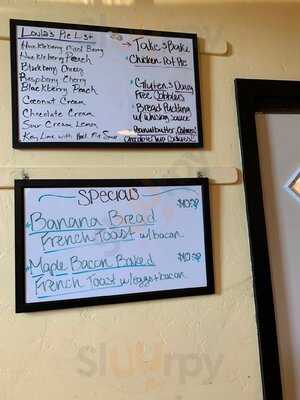 Loula's Pie List
Huckleberry Mixed Berry
Huckleberry Peach
Blackberry Cherry
Raspberry Cherry
Blackberry Peach
Coconut Cream
Chocolate Cream
Sour Cream Lemon
Key Lime with
Take & Bake
Chicken Pot Pie
Gluten & Dairy
Free Cobblers
Bread Pudding
w/ Whiskey Sauce
Peanut butter Cookies
Chocolate Chip Cookies
Specials
Banana Bread
French Toast w/bacon
Maple Bacon Baked
French Toast w/eggs + bacon
sluurpy